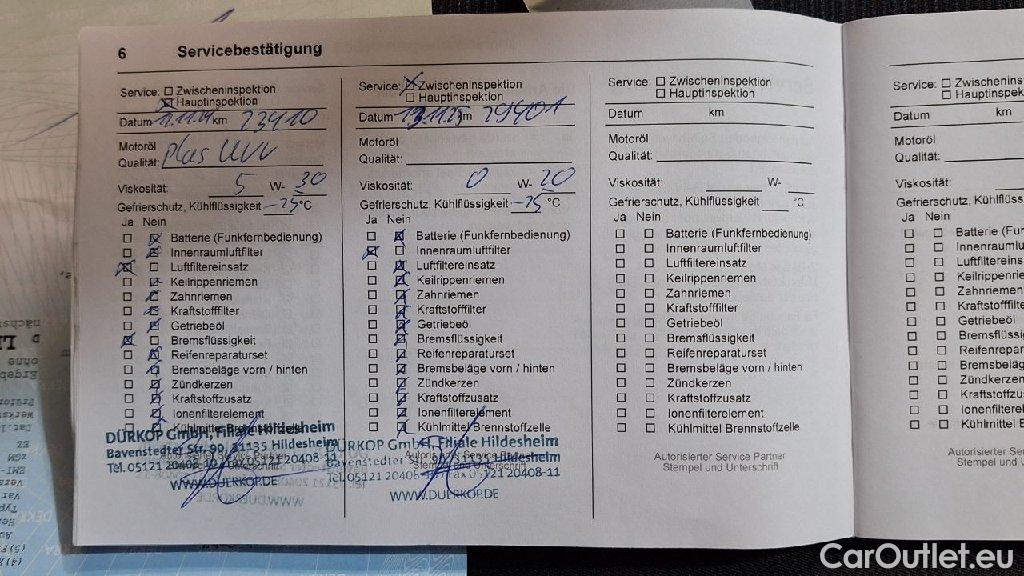 6 Servicebestätigung
Service: Zwischeninspektion
Hauptinspektion
Datum 11.24 km 23410
Motoröl
Qualität: plus
Viskosität: 5 W- 30
Gefrierschutz, Kühlflüssigkeit -25 °C
Ja Nein
Batterie (Funkfernbedienung)
Innenraumluftfilter
Luftfiltereinsatz
Keilrippenriemen
Zahnriemen
Kraftstofffilter
Getriebeöl
Bremsflüssigkeit
Reifenreparaturset
Bremsbeläge vorn / hinten
Zündkerzen
Kraftstoffzusatz
Ionenfilterelement
Kühlmittel Brennstoffzelle
DÜRKOP GmbH, Filiale Hildesheim
Bavenstedter Str. 90, 31135 Hildesheim
Tel. 05121 20408-10 Fax 05121 20408-11
WWW.DUERKOP.DE
Service: Zwischeninspektion
Hauptinspektion
Datum 13.11.25 km 29401
Motoröl
Qualität:
Viskosität: 0 W- 20
Gefrierschutz, Kühlflüssigkeit -25 °C
Ja Nein
Batterie (Funkfernbedienung)
Innenraumluftfilter
Luftfiltereinsatz
Keilrippenriemen
Zahnriemen
Kraftstofffilter
Getriebeöl
Bremsflüssigkeit
Reifenreparaturset
Bremsbeläge vorn / hinten
Zündkerzen
Kraftstoffzusatz
Ionenfilterelement
Kühlmittel Brennstoffzelle
DÜRKOP GmbH, Filiale Hildesheim
Bavenstedter Str. 90, 31135 Hildesheim
Tel. 05121 20408-10 Fax 05121 20408-11
WWW.DUERKOP.DE
Service: Zwischeninspektion
Hauptinspektion
Datum km
Motoröl
Qualität:
Viskosität: W-
Gefrierschutz, Kühlflüssigkeit °C
Ja Nein
Batterie (Funkfernbedienung)
Innenraumluftfilter
Luftfiltereinsatz
Keilrippenriemen
Zahnriemen
Kraftstofffilter
Getriebeöl
Bremsflüssigkeit
Reifenreparaturset
Bremsbeläge vorn / hinten
Zündkerzen
Kraftstoffzusatz
Ionenfilterelement
Kühlmittel Brennstoffzelle
Autorisierter Service Partner
Stempel und Unterschrift
Service: Zwischenins
Hauptinspek
Datum km
Motoröl
Qualität:
Viskosität:
Gefrierschutz, Kühlflüss
Ja Nein
Batterie (Funk
Innenraumluf
Luftfiltereinsa
Keilrippenriem
Zahnriemen
Kraftstofffilter
Getriebeöl
Bremsflüssig
Reifenrepara
Bremsbeläge
Zündkerzen
Kraftstoffzus
Ionenfiltere
Kühlmittel B
Autorisierter Ser
Stempel und U
CarOutlet.eu